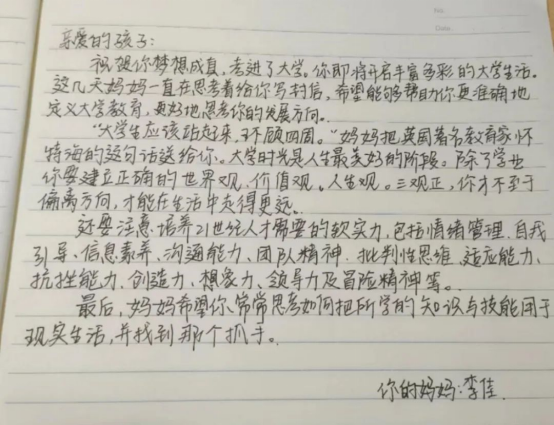 No.
Date.
亲爱的孩子:
祝贺你梦想成真,考进了大学。你即将开启丰富多彩的大学生活。
这几天妈妈一直在思考着给你写封信,希望能够帮助你更准确地
定义大学教育,更好地思考你的发展方向。
"大学生应该站起来,环顾四周。"妈妈把英国著名教育家怀
特海的这句话送给你。大学时光是人生最美好的阶段。除了学业
你要建立正确的世界观、价值观、人生观。三观正,你才不至于
偏离方向,才能在生活中走得更远。
还要注意培养21世纪人才需要的软实力,包括情绪管理、自我
引导、信息素养、沟通能力、团队精神、批判性思维、适应能力、
抗挫能力、创造力、想象力、领导力及冒险精神等。
最后,妈妈希望你、常常思考如何把所学的知识与技能用于
现实生活,并找到那个抓手。
你的妈妈:李佳